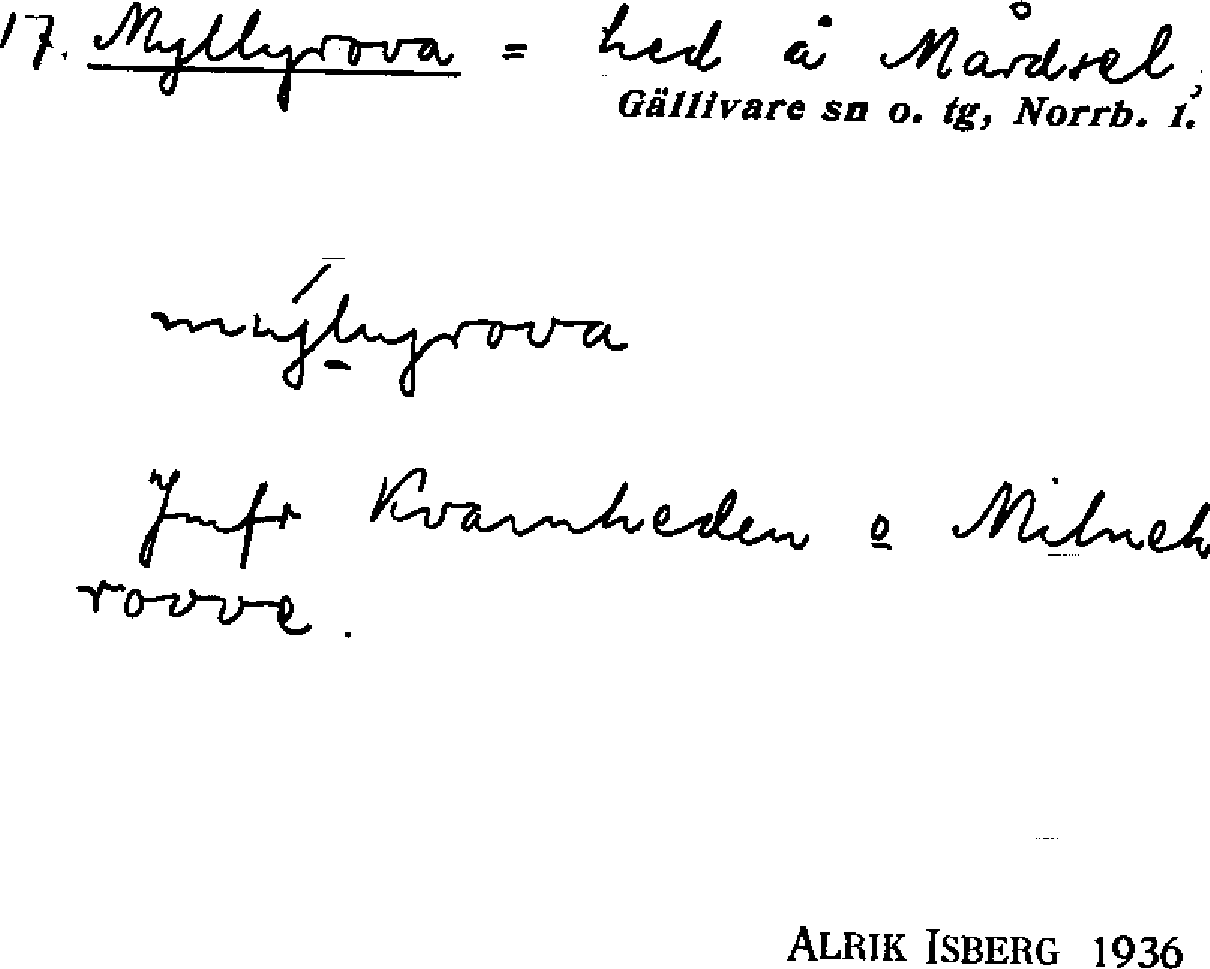 17. Myllyrova = hed å Mårdsel,
Gällivare sn o. tg, Norrb. l.
mýlyrova
Jmfr Kvarnheden o Milneh
rovve.
ALRIK ISBERG 1936